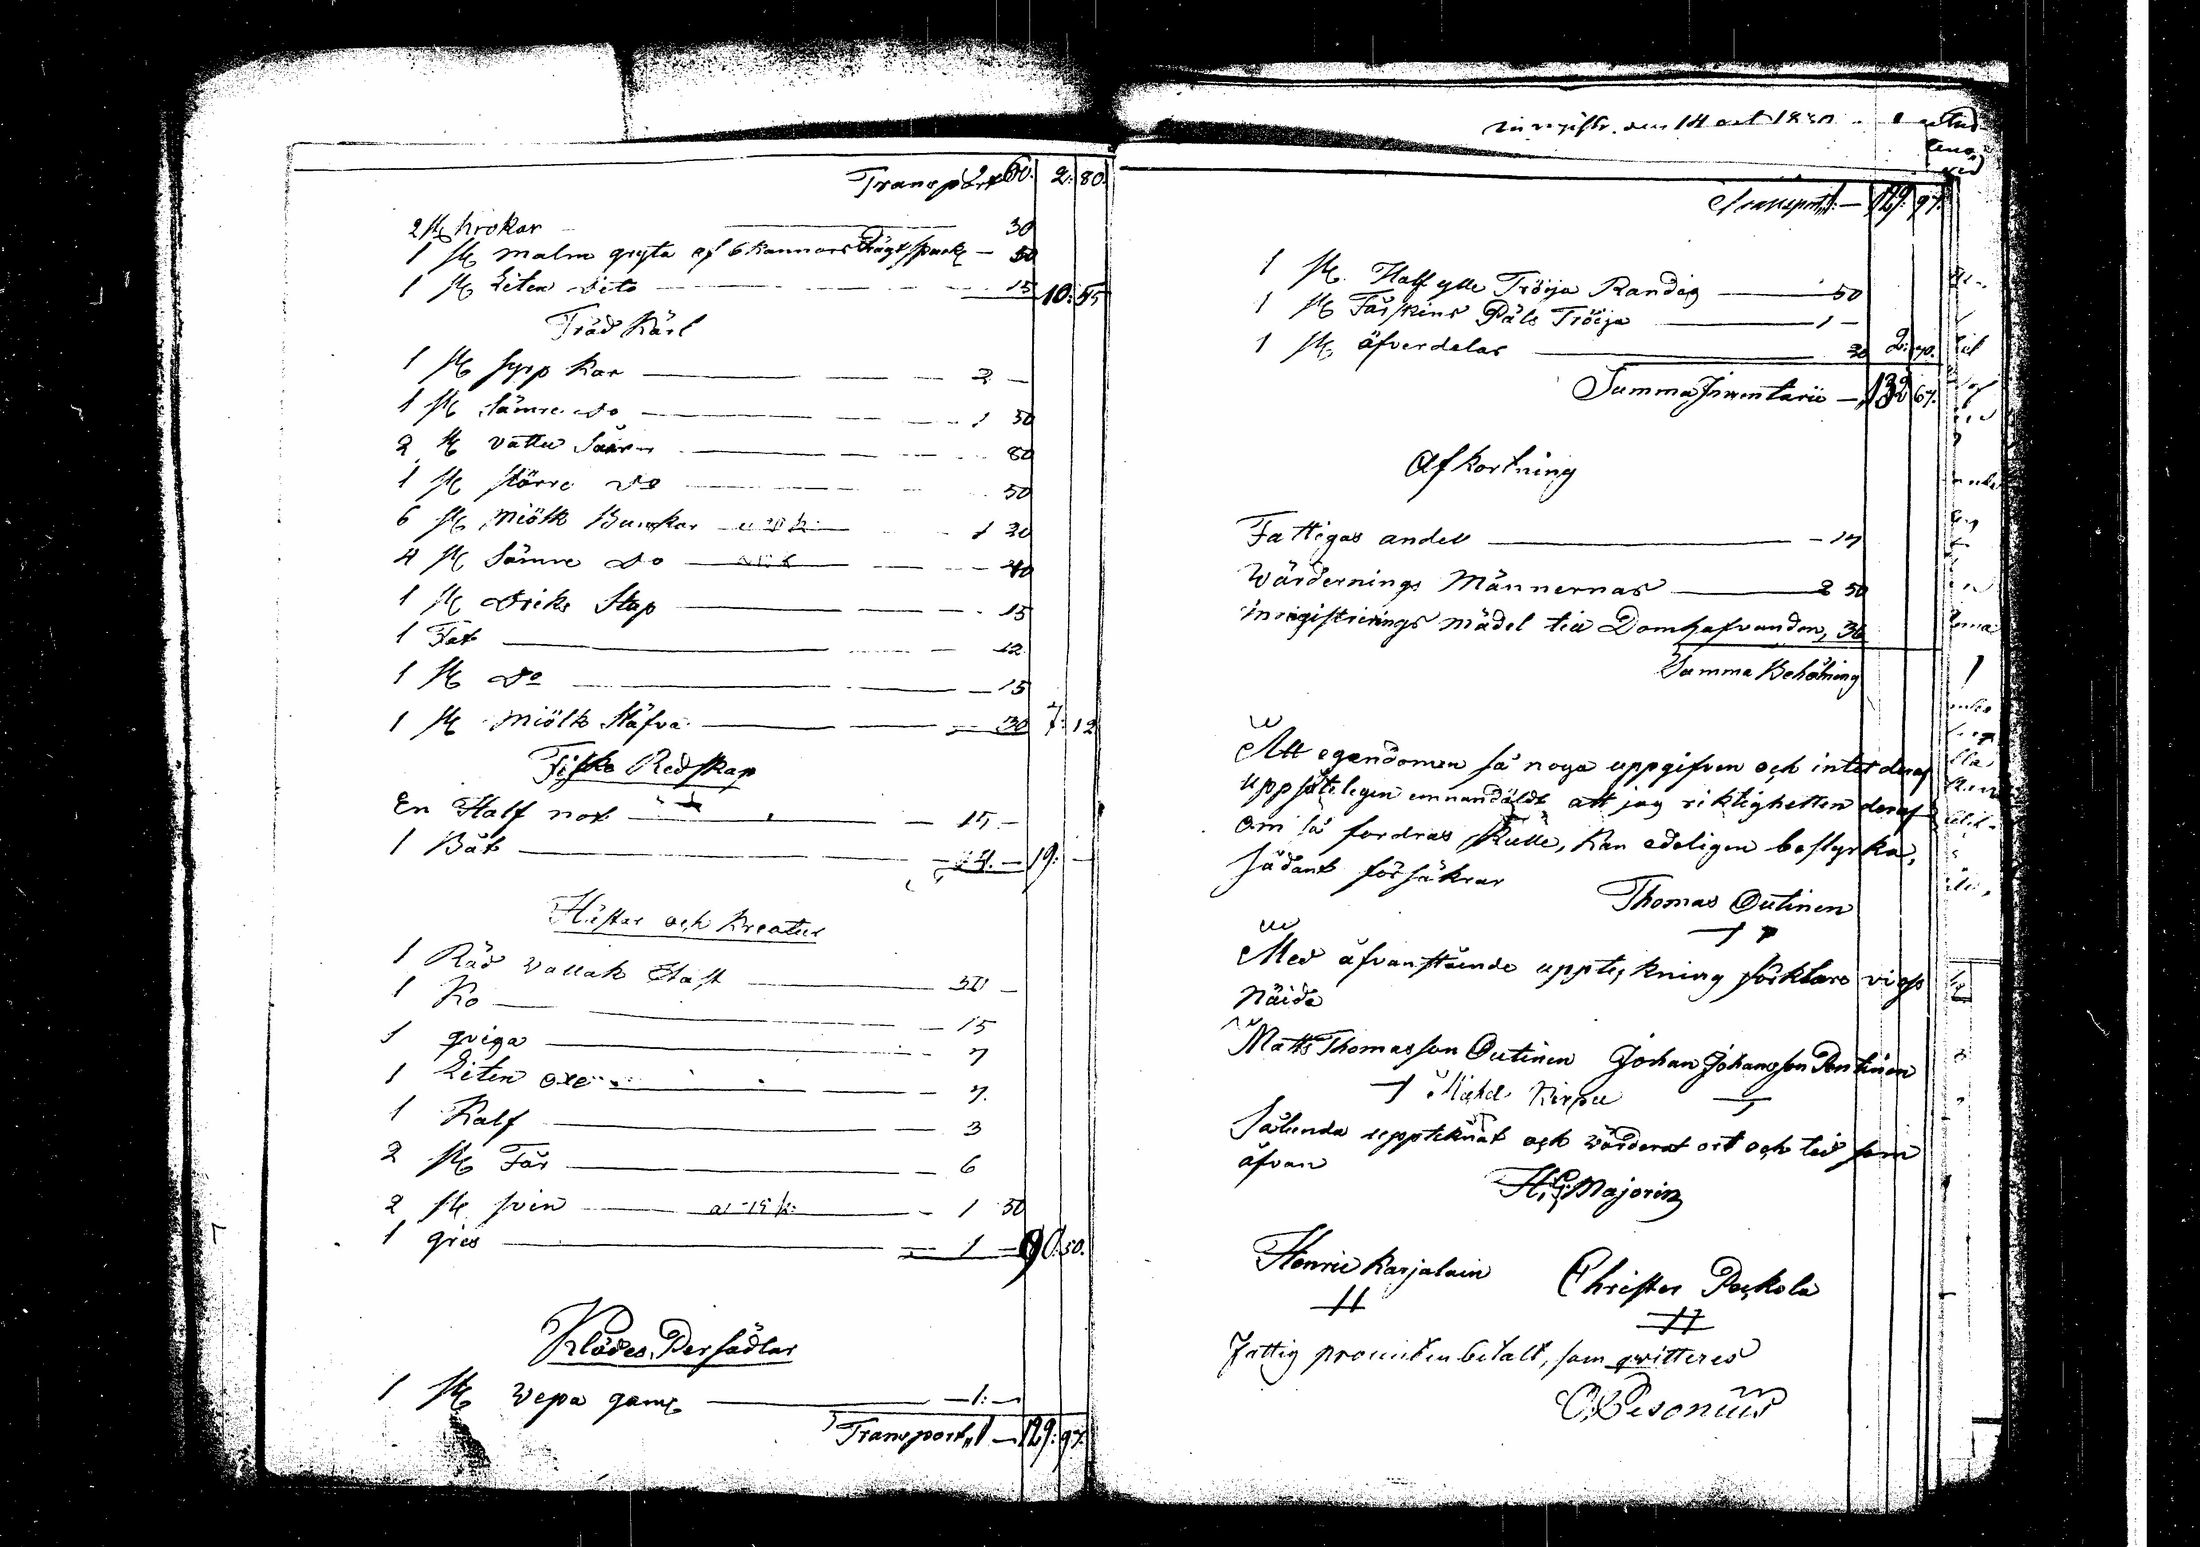 Transport 60. 2: 80.
2 st krokar 30
1 st malm gryta af 6 kannors 50
1 st Liten dito 15 10: 55
Träd Kärl
1 st sypp kar 2 —
1 st Sämre do 1 50
2 st vattu 80
1 st större do 50
6 st Miölk Bunkar a 20 k 1 20
4 st Sämre do 40
1 st Driks Stop 15
1 Fat 12
1 st do 15
1 st Miölk Stäfva 30 7: 12
Fiske Redskap
En Half not 15 —
1 Båt 4. — 19: —
Hästar och Kreatur
1 Röd vallak Häst 50 —
1 Ko 15
1 qviga 7
1 Liten oxe 7.
1 Kalf 3
2 st Får 6
2 st svin a 75 k: 1 50
1 gris 1 — 90. 50.
Klädes Persädlar
1 st Wepa gaml 1: —
Transport,, 1 — 129: 97.
inregistr. den 14 oct 1830
Transport,, 1: — 129: 97.
1 st Half ylle Tröija Randig 50
1 st Fårskins Päls Tröija 1 —
1 st äfverdelar 20 2: 70.
Summa Inventarii — 132 67.
Afkortning
Fattigas andell — 17
Wärderings Männernas 2 50
inregistrerings mädel till Domhafvanden, 36
Summa Behållning
Att egendomen så noga uppgifven och intet deraf
uppsåteligen undandöldt att jag riktighetten deraf
om så fordras skulle, kan edeligen bestyrka,
sådant försäkrar
Thomas Outinen
Med äfvanstående uppteckning förklare vi oss
nöida
Matts Thomasson Outinen Johan Johansson Pentinen
Michel Kirpu
Sålunda upptecknat och wärderat ort och tid som
äfvan
H. G. Majorin
Henric Karjalain Christer Peckola
Fattig procenten betalt, som qvitteres
O. Pesonius